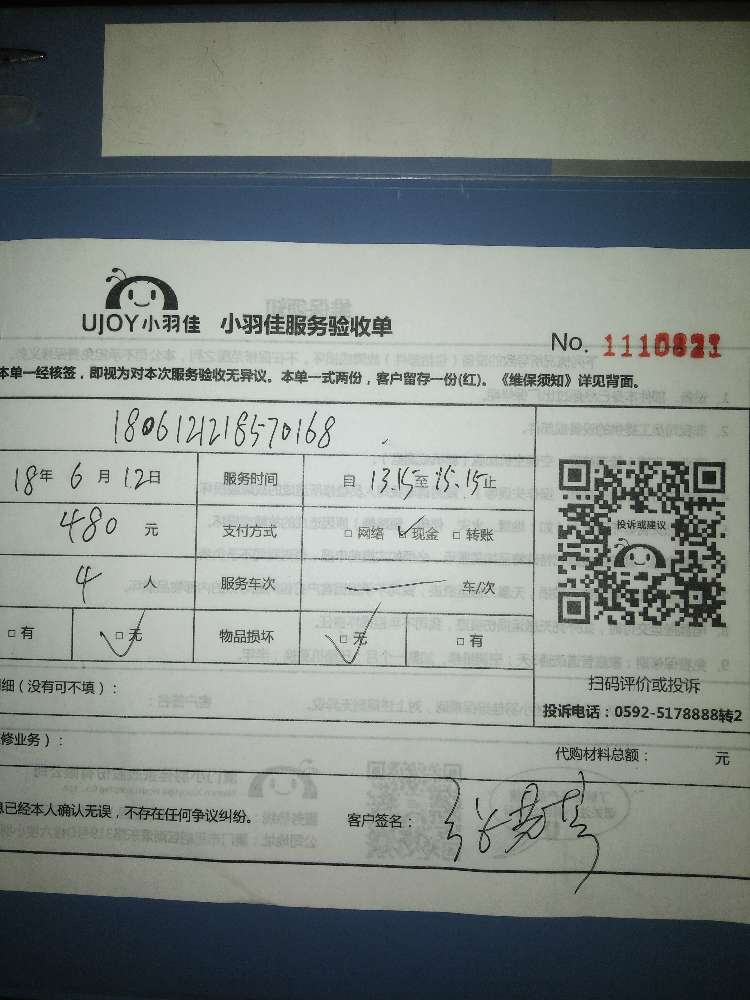 UJOY小羽佳 小羽佳服务验收单
No. 1110821
本单一经核签，即视为对本次服务验收无异议。本单一式两份，客户留存一份(红)。《维保须知》详见背面。
180612121857 0168
18年 6月 12日 服务时间 自 13.15至 15.15止
480 元 支付方式 □网络 □现金 □转账
4 人 服务车次 车/次
投诉或建议
□有 □无 物品损坏 □无 □有
扫码评价或投诉
细（没有可不填）：
投诉电话：0592-5178888转2
修业务）：
代购材料总额： 元
息已经本人确认无误，不存在任何争议纠纷。 客户签名：